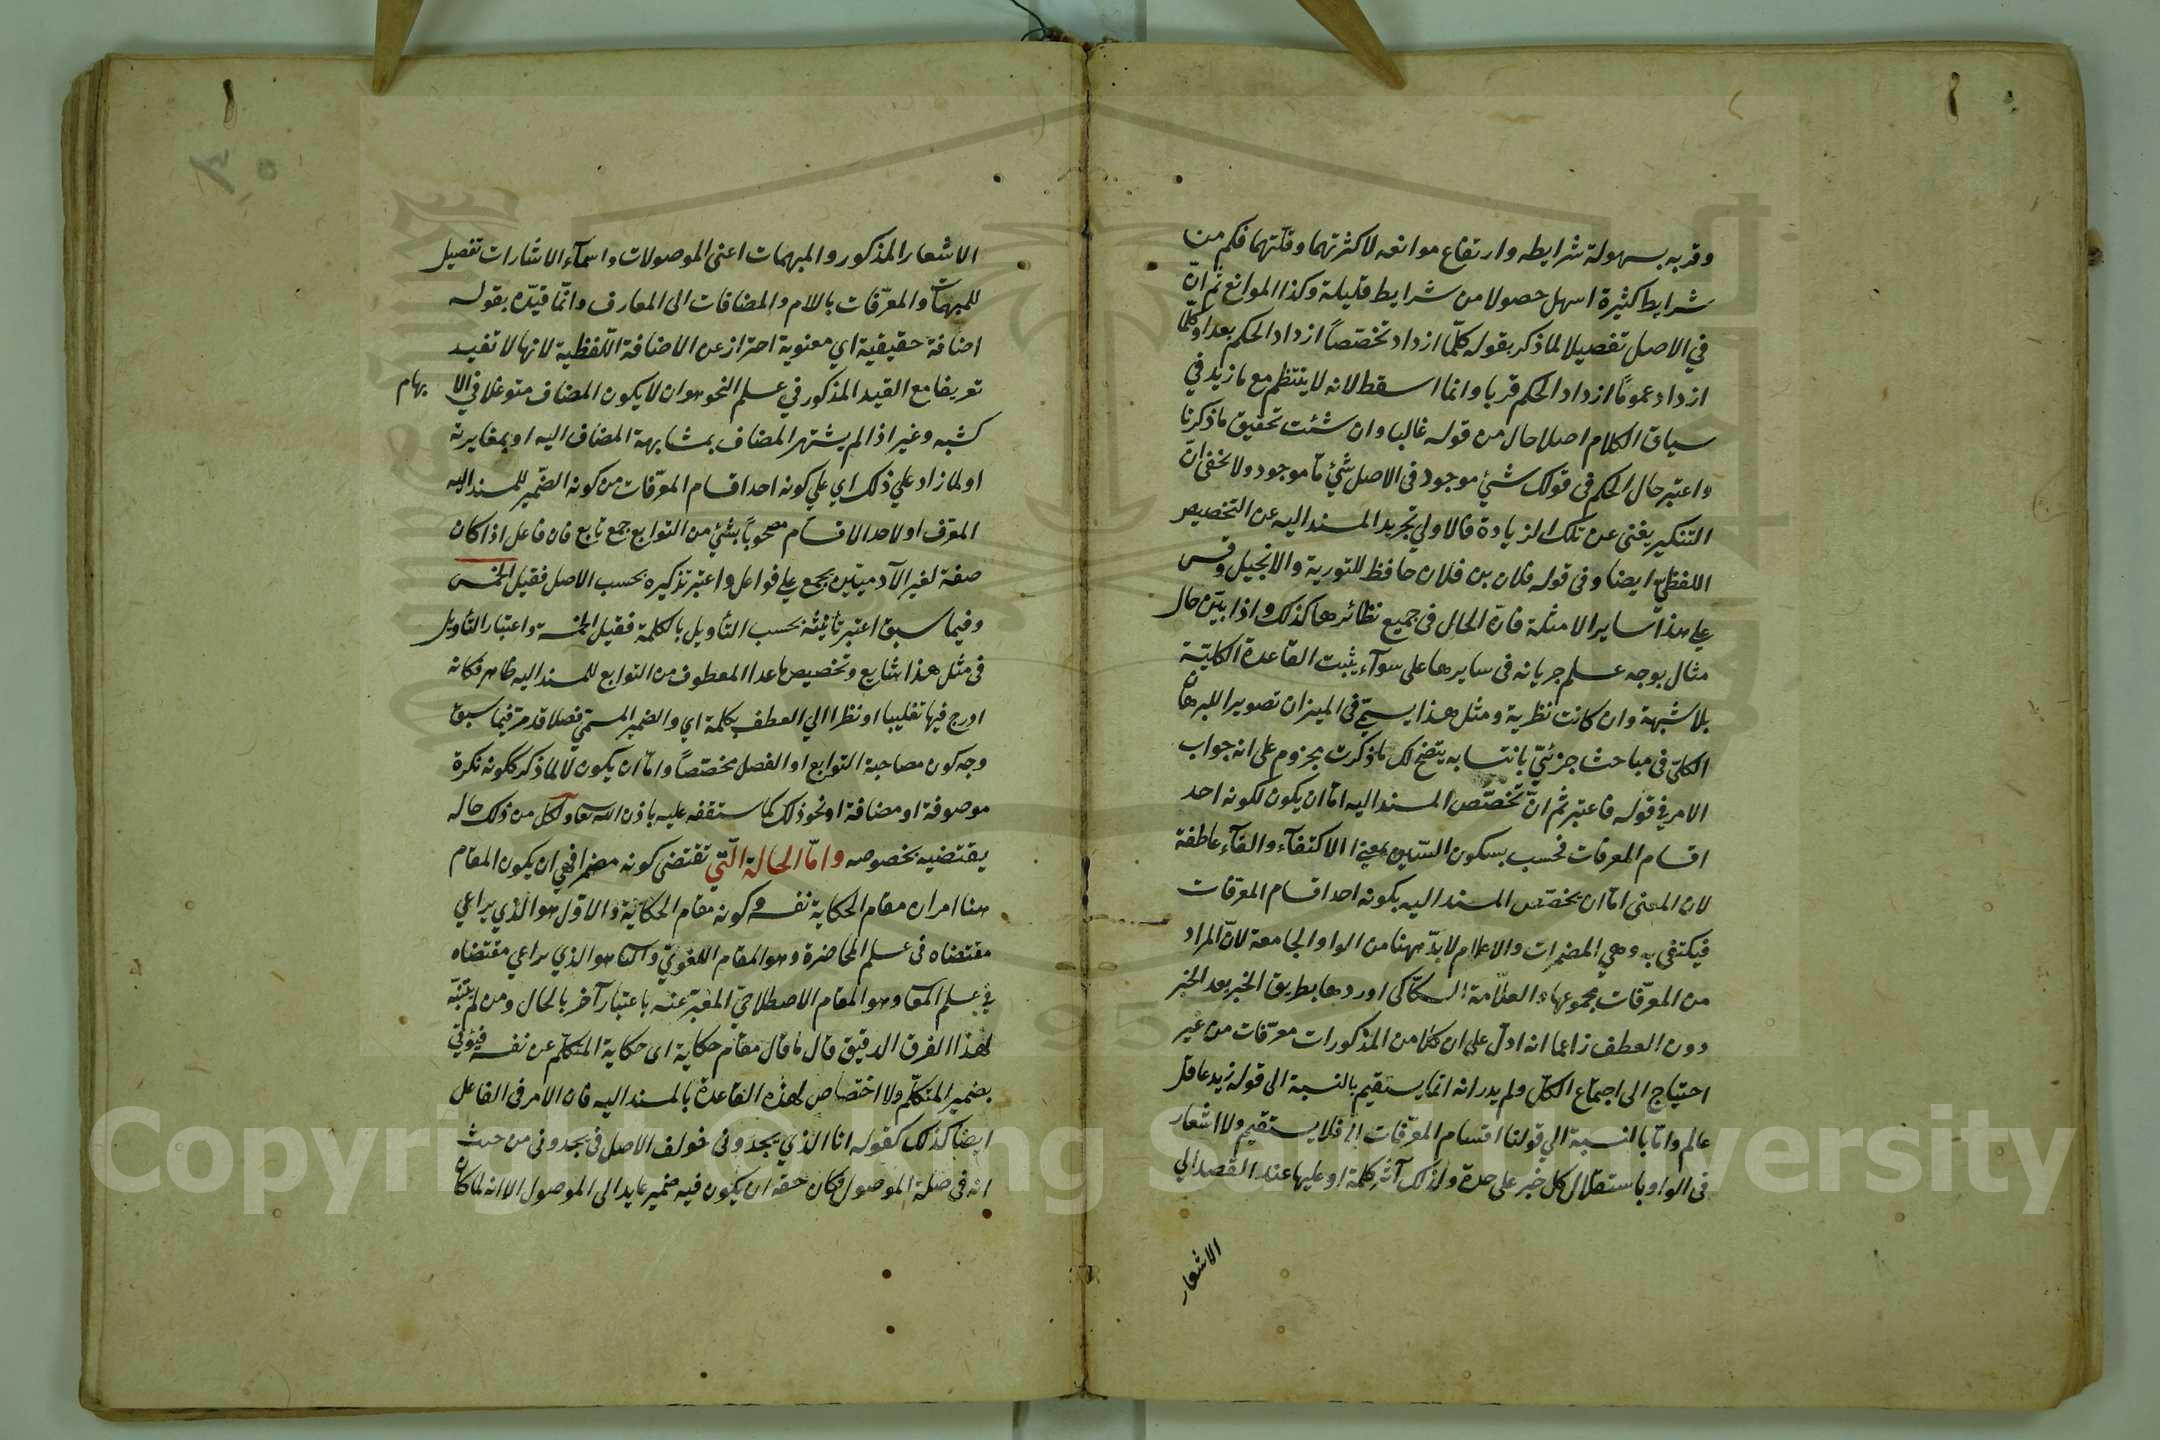 وقربه بسهولة شرايطه وارتفاع موانعه لا كثرتهما وقلتهما فكم من
شرايط كثيرة اسهل حصولا من شرايط قليلة وكذا الموانع ثم ان
في الاصل تفصيلا لما ذكر بقوله كلّما ازداد تخصّصاً ازداد الحكم بعدا وكلّما
ازداد عموما ازداد الحكم قربا وانما اسقط لانه لا ينتظم مع ما زيد في
سياق الكلام اصلا حال من قوله غالبا وان شئت تحقيق ما ذكرنا
واعتبر حال الحكم في قولك شيء موجود في الاصل شيء ما موجود ولا يخفى ان
التنكير يغني عن تلك الزيادة فالاولي تجريد المسند اليه عن التخصيص
اللفظي ايضا وفي قوله فلان بن فلان حافظ للتورية والانجيل وقس
على هذا ساير الامثلة فان الحال في جميع نظائرها كذلك واذا بيّن حال
مثال بوجه علم جريانه في سايرها على سوآء يثبت القاعدة الكليّة
بلا شبهة وان كانت نظرية ومثل هذا يسمّى في الميزان تصوير البرهان
الكلّي في مباحث جزئيّ بانتسابه يتضح لك ما ذكرت مجزوم على انه جواب
الامر في قوله فاعتبر ثم انّ تخصّص المسند اليه امّا ان يكون لكونه احد
اقسام المعرفات فحسب بسكون السّين بمعنى الاكتفآء والفآء عاطفة
لان المعنى امّا ان يخصّص المسند اليه بكونه احد اقسام المعرفات
فيكتفى به وهي المضمرات والاعلام لابدّ ههنا من الواو الجامعة لانّ المراد
من المعرّفات مجموعها والعلّامة السكّاكي اوردها بطريق الخبر بعد الخبر
دون العطف زاعما انه ادلّ على ان كلا من المذكورات معرّفات من غير
احتياج الى اجتماع الكلّ ولم يدر انه انما يستقيم بالنسبة الى قوله زيد عاقل
عالم وامّا بالنسبة الي قولنا اقسام المعرّفات الخ فلا يستقيم ولا اشعار
في الواو باستقلال كل خبر على حدة ولذلك آثر كلمة او عليها عند القصد الي
الاشعار
الاشعار المذكور والمبهمات اعني الموصولات واسمآء الاشارات تفصيل
للمبهمات والمعرّفات باللام والمضافات الى المعارف وانّما قيّده بقوله
اضافة حقيقية اي معنوية احتراز عن الاضافة اللّفظية لانها لا تفيد
تعريفا مع القيد المذكور في علم النحو هو ان لا يكون المضاف متوغلا في الا بهام
كشبه وغير اذا لم يشتهر المضاف بمشابهة المضاف اليه او بمغايرته
او لما زاد علي ذلك اي علي كونه احد اقسام المعرّفات من كونه الضّمير للمسند اليه
المعرّف او لاحد الاقسام مصحوباً بشيء من التوابع جمع تابع فان فاعل اذا كان
صفة لغير الآدميّين يجمع علي فواعل واعتبر تذكيره بحسب الاصل فقيل الخمس
وفيما سبق اعتبر تأنيثه بحسب التأويل بالكلمة فقيل الخمسة واعتبار التأويل
في مثل هذا شايع وتخصيص ما عدا المعطوف من التوابع للمسند اليه ظاهر فكانه
ادرج فيها تغليبا او نظرا الي العطف بكلمة اي والضمير المسمّي فصلا قد مرّ فيما سبق
وجه كون مصاحبة التوابع او الفصل مخصّصاً وامّا ان يكون لا لما ذكر ككونه نكرة
موصوفة او مضافة او نحو ذلك كما ستقفه عليه باذن الله تعا ولكل من ذلك حاله
يقتضيه بخصوصه وامّا الحالة الّتي تقتضي كونه مضمرا فهي ان يكون المقام
هنا امران مقام الحكاية نفسه وكونه مقام الحكاية والاوّل هو الّذي يراعي
مقتضاه في علم المحاضرة وهو المقام اللغويّ والثا هو الذي يراعي مقتضاه
في علم المعا وهو المقام الاصطلاحيّ المعبّر عنه باعتبار آخر بالحال ومن لم يتنبّه
لهذا الفرق الدقيق قال ما قال مقام حكاية اي حكاية المتكلّم عن نفسه فيؤتي
بضمير المتكلّم ولا اختصاص لهذه القاعدة بالمسند اليه فان الامر في الفاعل
ايضا كذلك كقوله انا الذي يجدوني خولف الاصل في يجدوني من حيث
انه في صلة الموصول فكان حقه ان يكون فيه ضمير عايد الى الموصول الا انه لما كان
Copyright © King Saud University